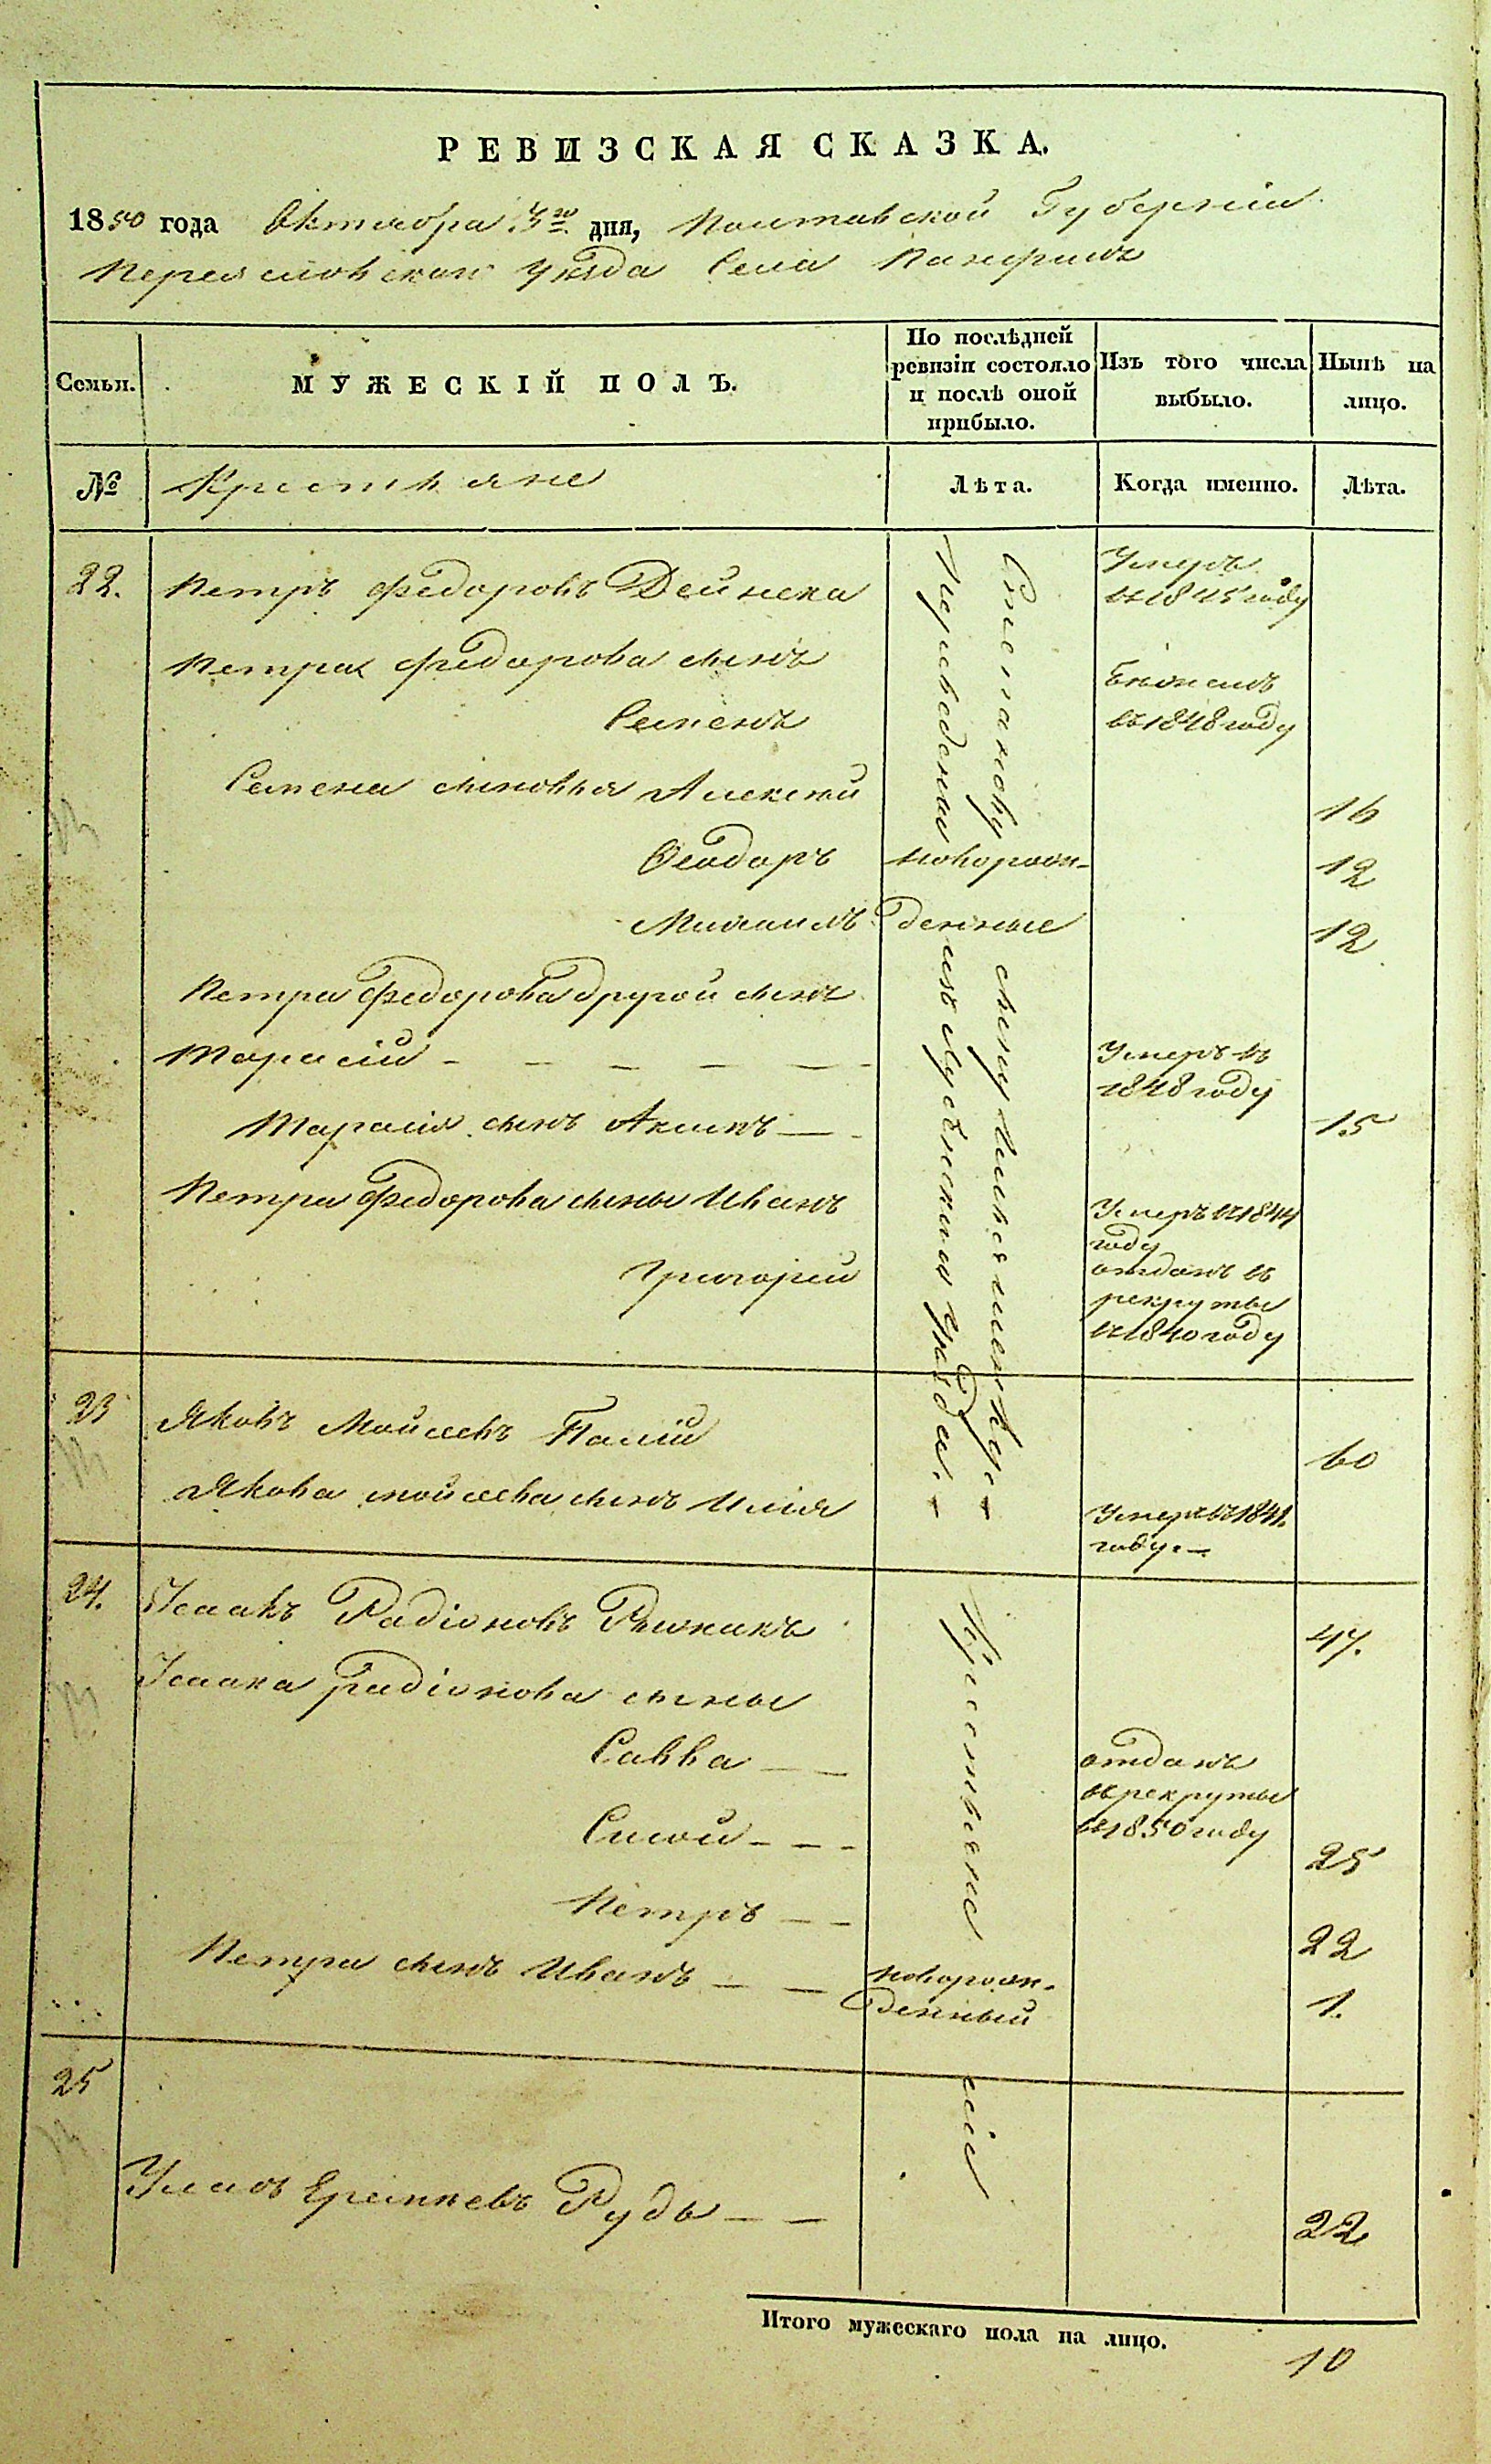 РЕВИЗСКАЯ СКАЗКА.
1850 года Октября 3го дня, Полтавской Губерніи
Переяславскаго уѣзда Села
Семьи.
МУЖЕСКІЙ ПОЛЪ.
По послѣдней
ревизіи состояло
и послѣ оной
прибыло.
Изъ того числа
выбыло.
Нынѣ на
лицо.
№
Крестьяне
Лѣта.
Когда именно.
Лѣта.
22. Петръ Федоровъ Дейнека
Умеръ
въ 1845 году
Петра Федорова сынъ
Семенъ
въ 1848 году
Семена сыновья Алексѣй 16
Ѳеодоръ новорож- 12
Михаилъ денные 12
Петра Федорова другой сынъ
Тарасій
Умеръ въ
1848 году
Тарасія сынъ Акимъ 15
Петра Федорова сыны Иванъ
Умеръ въ 1844
году
Григорій
отданъ въ
рекруты
въ 1840 году
23 Яковъ Мойсеевъ Палій 60
Якова Мойсеева сынъ Илія
Умеръ въ 1841.
году.
Переведены изъ уѣзда.
24. Исаакъ Радіоновъ Рыжикъ 47.
Исаака Радіонова сыны
Савва
отданъ
въ рекруты
въ 1850 году
Сисой 25
Петръ 22
Петра сынъ Иванъ
новорож-
денный
1.
25
Ермиоевъ Рудь 22
Итого мужескаго пола на лицо.
10